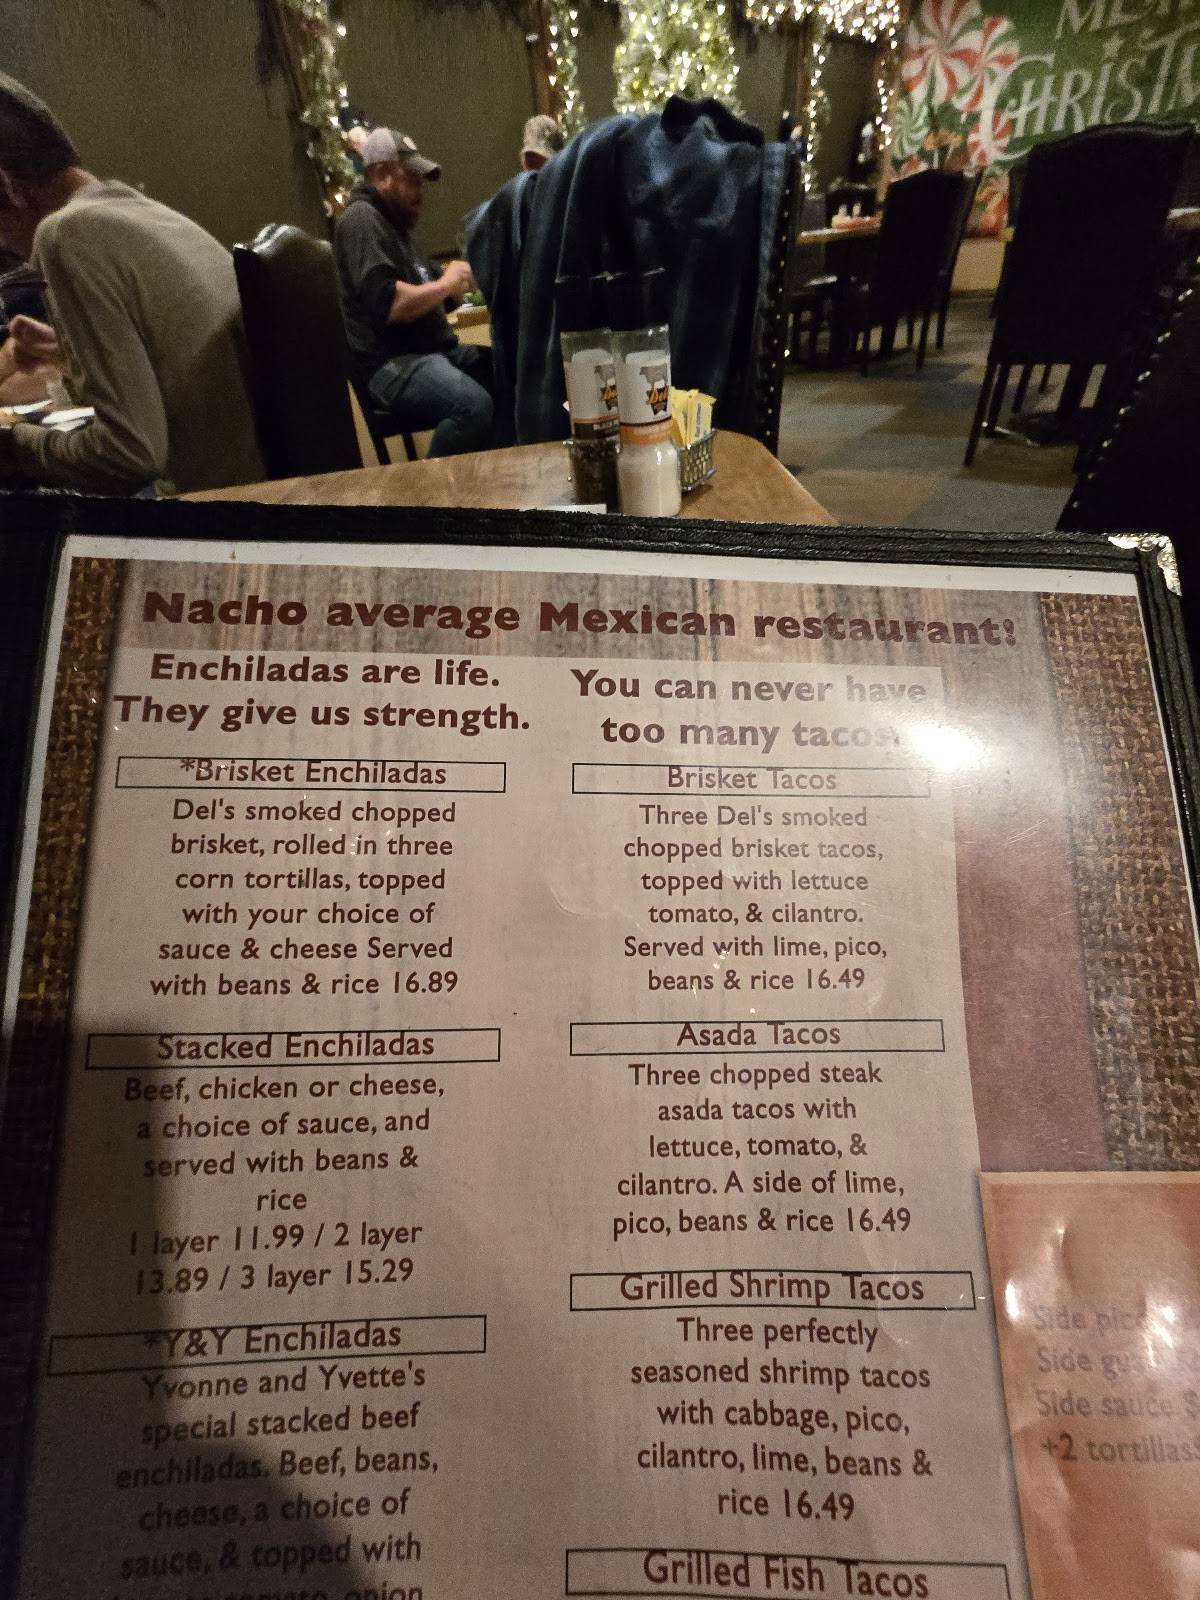 CHRISTM
Del
Nacho average Mexican restaurant!
Enchiladas are life.
They give us strength.
*Brisket Enchiladas
Del's smoked chopped
brisket, rolled in three
corn tortillas, topped
with your choice of
sauce & cheese Served
with beans & rice 16.89
Stacked Enchiladas
Beef, chicken or cheese,
a choice of sauce, and
served with beans &
rice
1 layer 11.99 / 2 layer
13.89 / 3 layer 15.29
*Y&Y Enchiladas
Yvonne and Yvette's
special stacked beef
enchiladas. Beef, beans,
cheese, a choice of
sauce, & topped with
onion
You can never have
too many tacos
Brisket Tacos
Three Del's smoked
chopped brisket tacos,
topped with lettuce
tomato, & cilantro.
Served with lime, pico,
beans & rice 16.49
Asada Tacos
Three chopped steak
asada tacos with
lettuce, tomato, &
cilantro. A side of lime,
pico, beans & rice 16.49
Grilled Shrimp Tacos
Three perfectly
seasoned shrimp tacos
with cabbage, pico,
cilantro, lime, beans &
rice 16.49
Grilled Fish Tacos
Side pico
Side
Side sauce
+2 tortillas